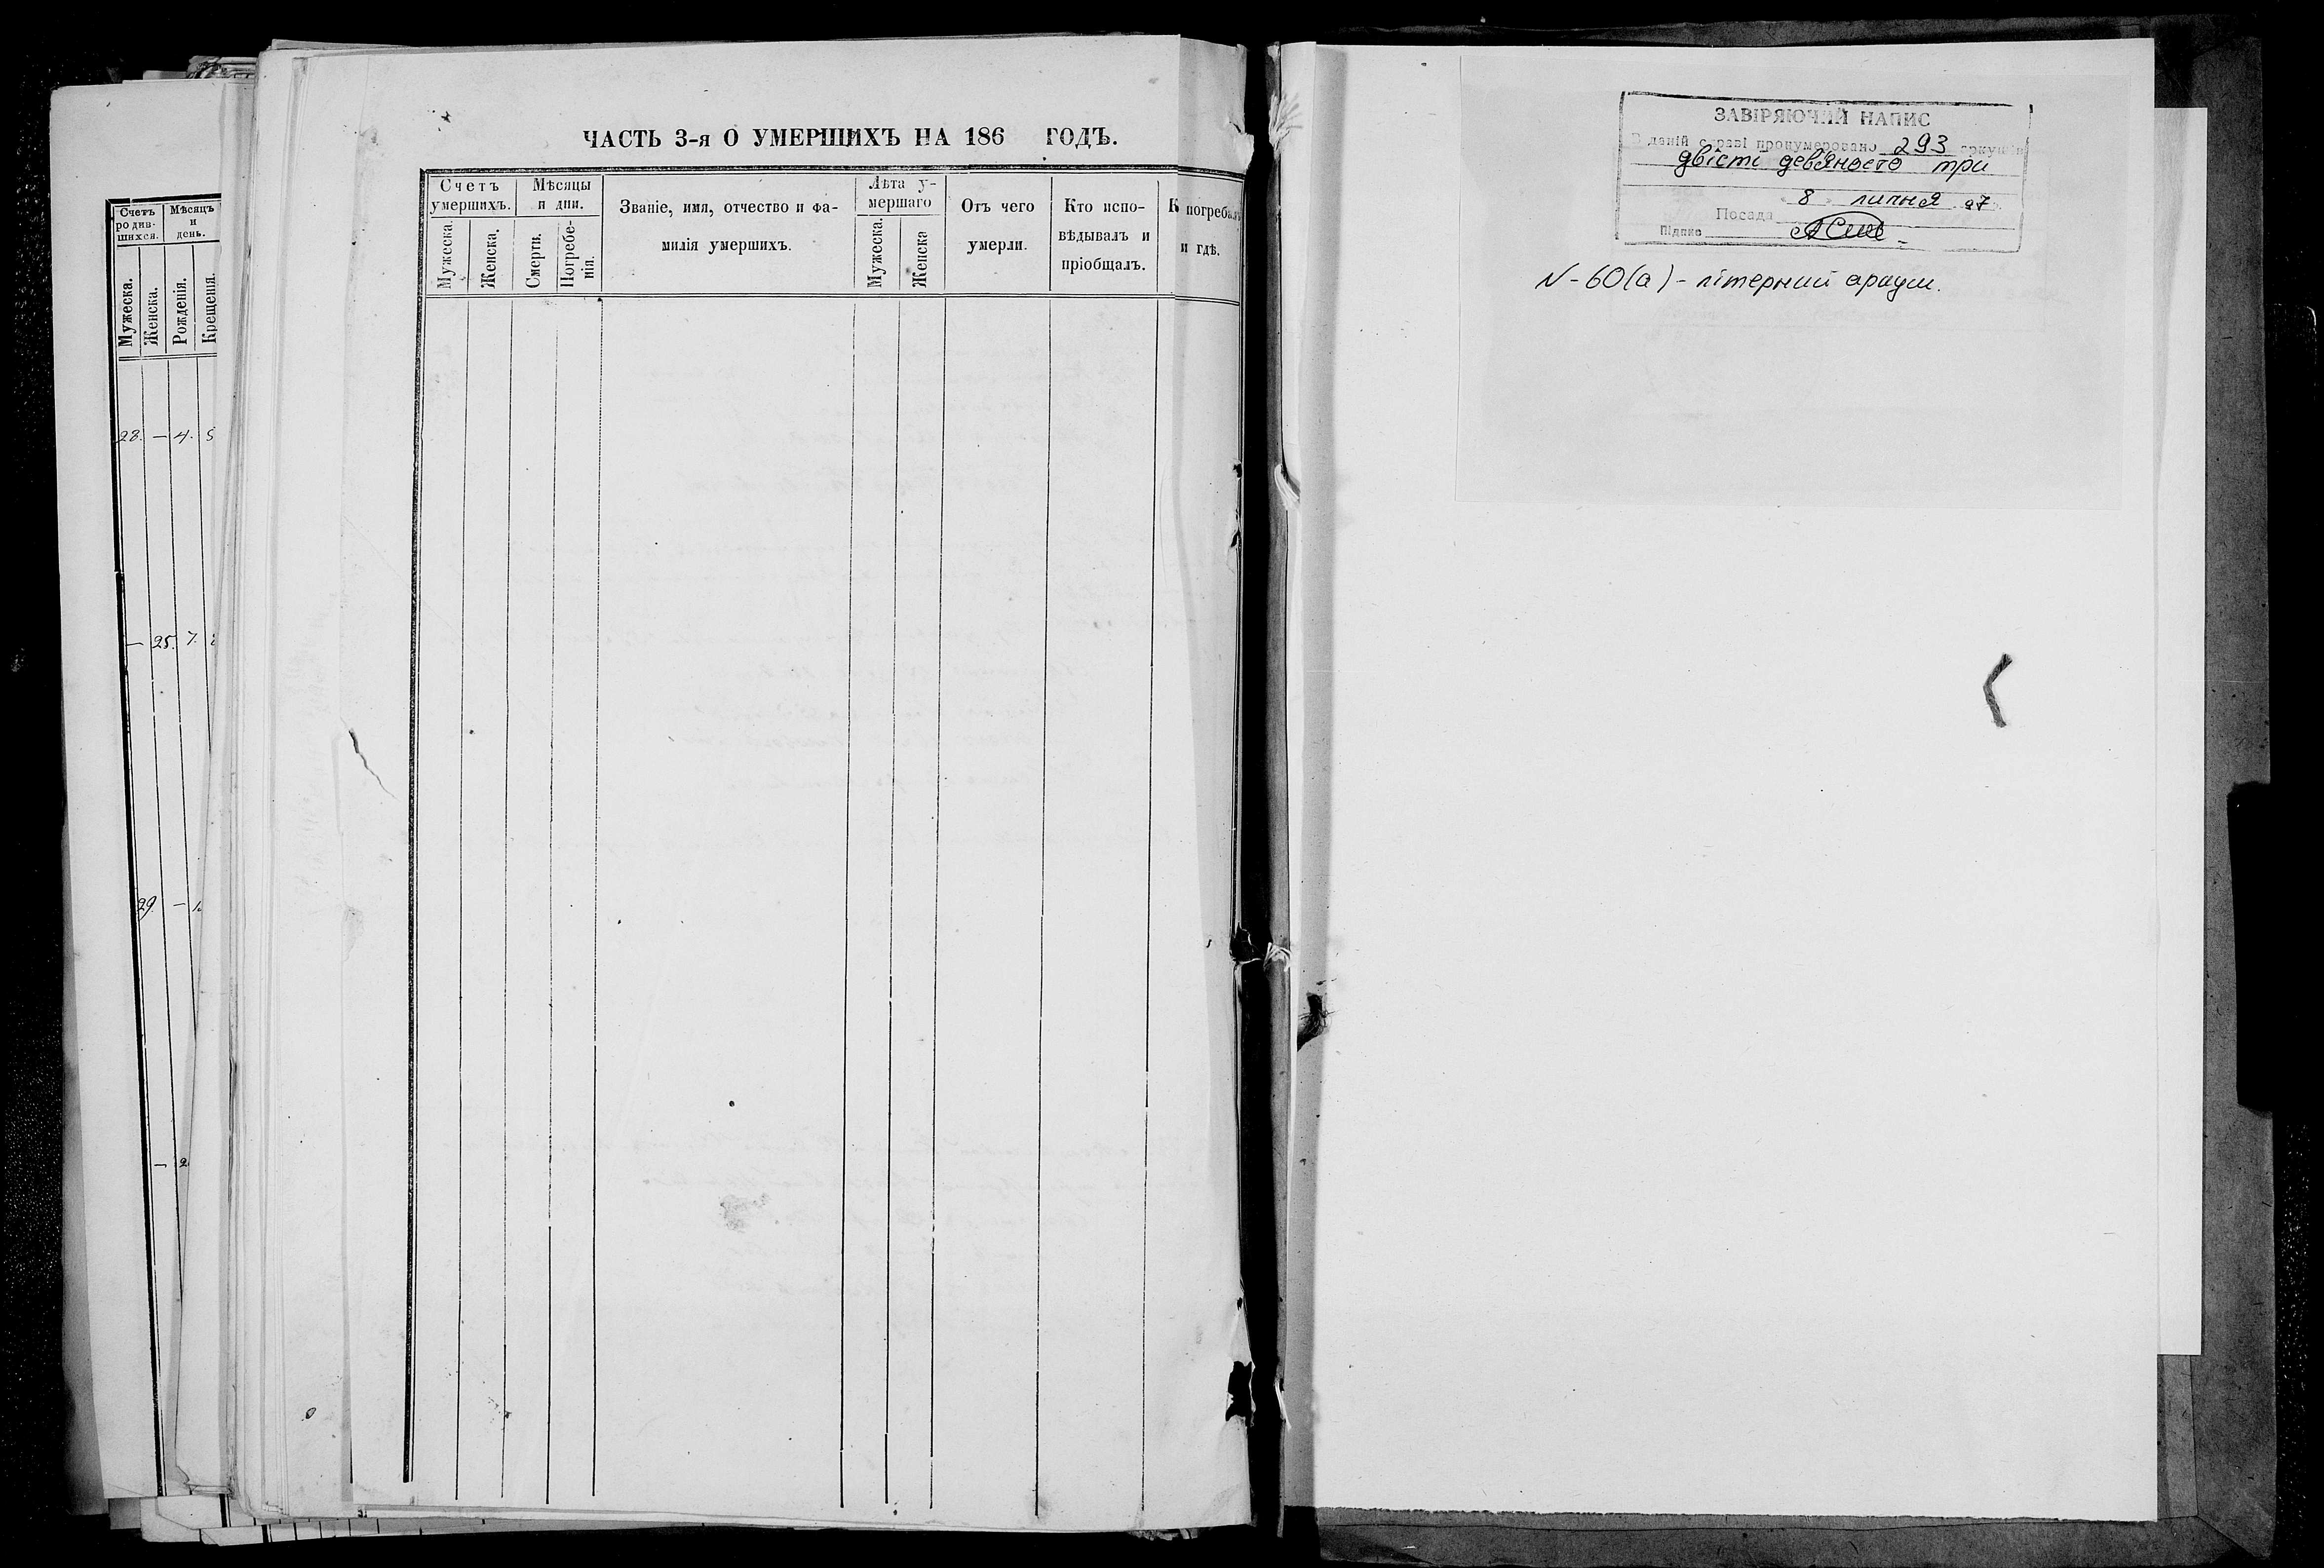 Счетъ родив-шихся.
Мѣсяцъ и день.
Мужеска.
Женска.
Рожденія.
Крещенія.
28. — 4. 5
— 25. 7.
29. —
—
ЧАСТЬ 3-я О УМЕРШИХЪ НА 186 ГОДЪ.
Счетъ умершихъ.
Мѣсяцы и дни.
Званіе, имя, отчество и фа-
милія умершихъ.
Лѣта у-
мершаго
Отъ чего
умерли.
Кто испо-
вѣдывалъ и
пріобщалъ.
К погребал
и гдѣ.
Мужеска.
Женска.
Смерти.
Погребе-
нія.
Мужеска.
Женска
ЗАВІРЯЮЧИЙ НАПИС
В даній справі пронумеровано 293 аркушів
двісті дев'яносто три
8 липня 97
Посада
Підпис
N-60(а) - літерний аркуш.